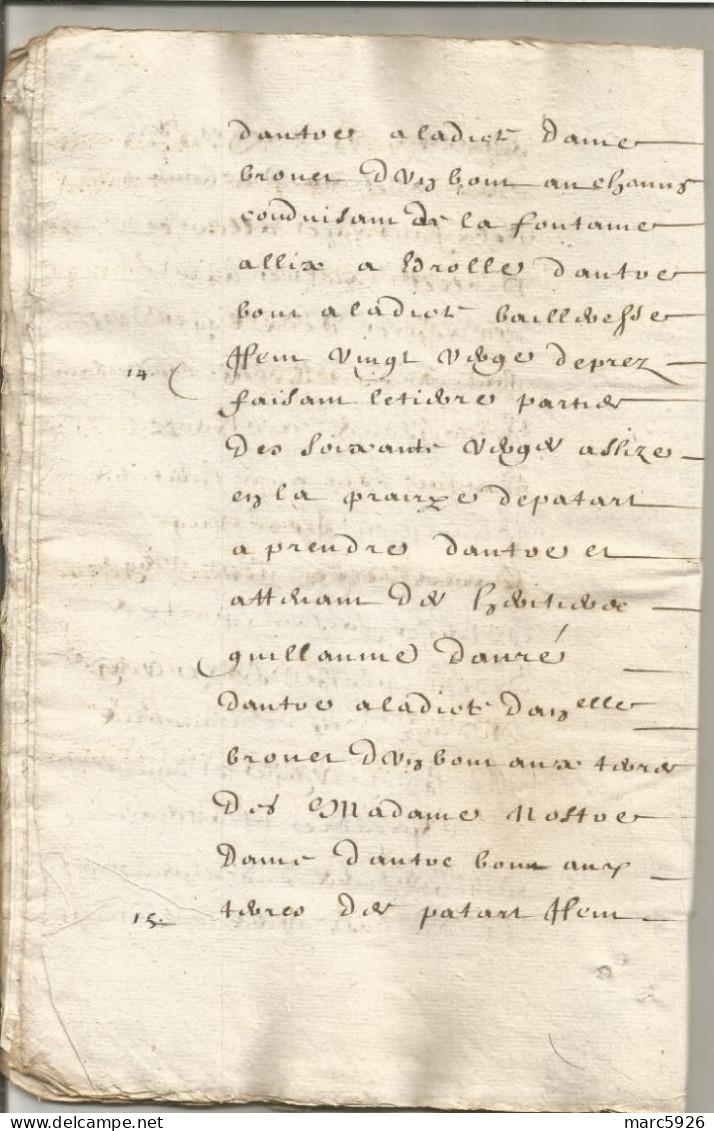 dautre a ladict dame
brouet dung bout au chemin
conduisant de la fontaine
allix a drolle dautre
bout a ladict baillivesse
14 Item vingt verge de prez
faisant le tierce partie
des soixante verges assize
en la prairye de patart
a prendre dautre et
attenant des heritiers
guillaume dauré
dautre a ladict dam<sup>elle</sup>
brouet dung bout aux terre
des Madame Nostre
Dame dautre bout aux
15 terres de patart Item
marc5926